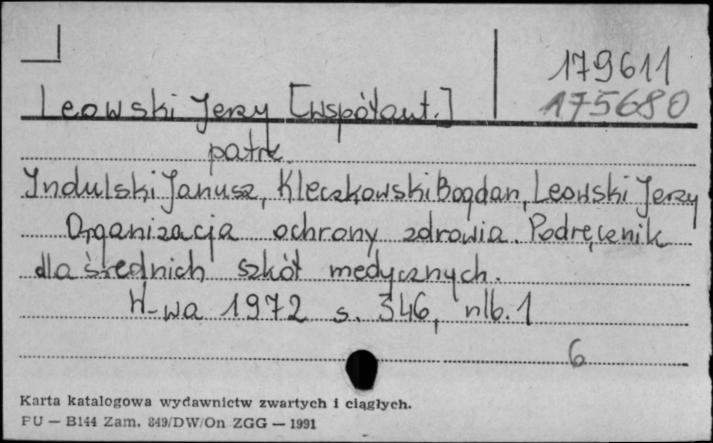 179611
Leowski Jerzy [współaut.] 175680
patrz
Indulski Janusz, Kleczkowski Bogdan, Leowski Jerzy
Organizacja ochrony zdrowia. Podręcznik
dla średnich szkół medycznych.
W-wa 1972 s. 346, nlb. 1
6
Karta katalogowa wydawnictw zwartych i ciągłych.
PU — B144 Zam. 849/DW/On ZGG — 1991